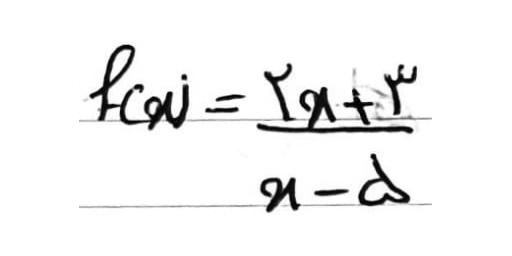 f(x) = ۲x+۳
x-۵